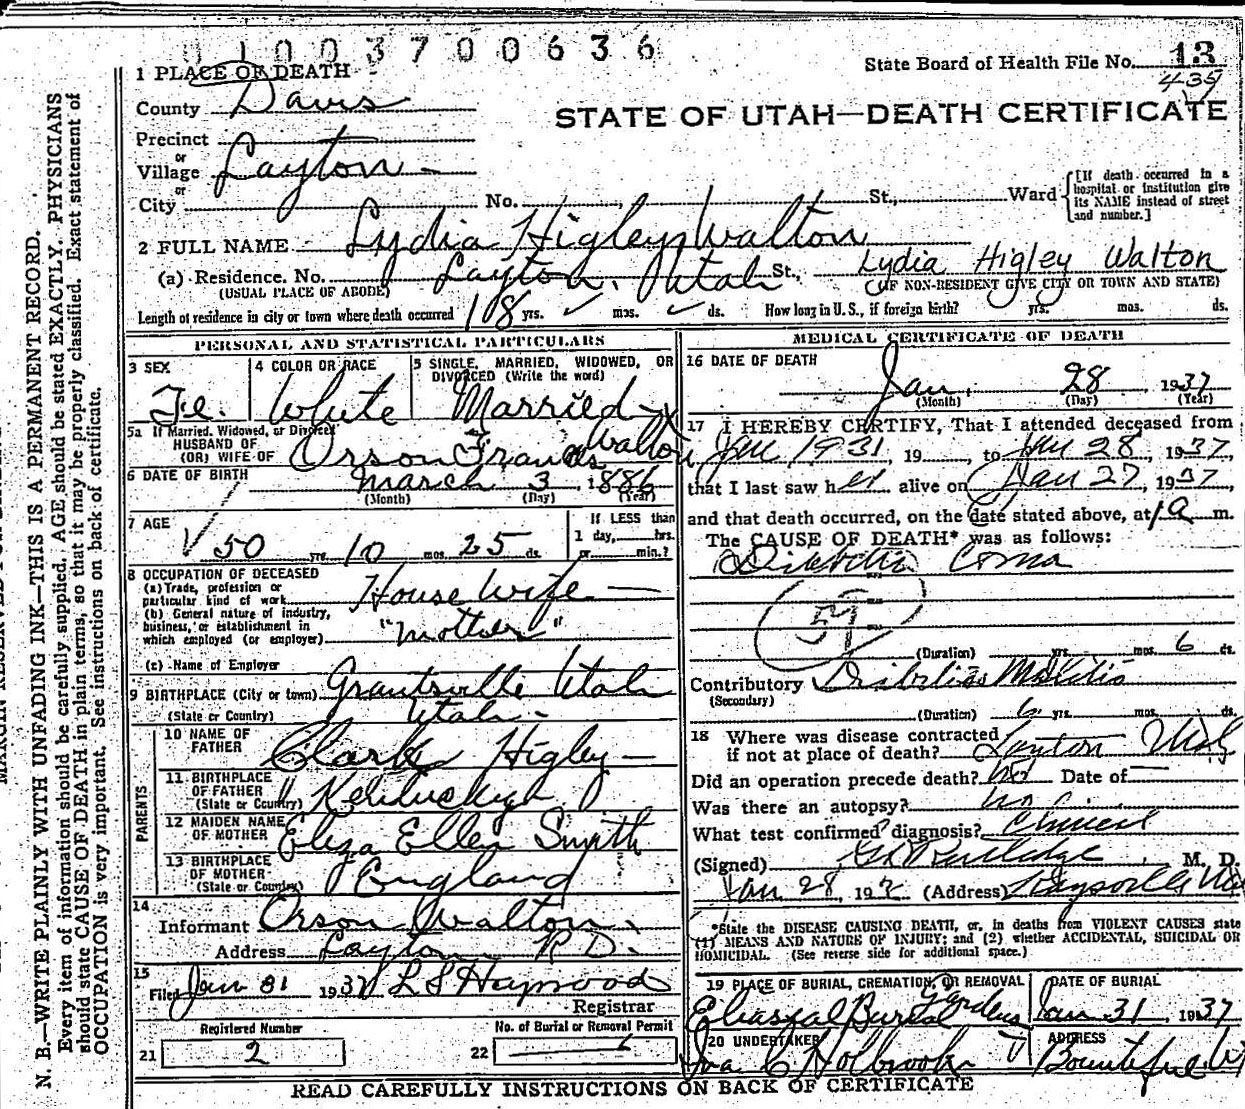 01003700636
State Board of Health File No. 13
435
1 PLACE OF DEATH
County Davis
STATE OF UTAH—DEATH CERTIFICATE
Precinct
or
Village Layton
or
City No. St., Ward [If death occurred in a hospital or institution give its NAME instead of street and number.]
2 FULL NAME Lydia Higley Walton
(a) Residence. No. Layton, Utah St., Lydia Higley Walton
(USUAL PLACE OF ABODE) (IF NON-RESIDENT GIVE CITY OR TOWN AND STATE)
Length of residence in city or town where death occurred 18 yrs. mos. ds. How long in U. S., if foreign birth? yrs. mos. ds.
PERSONAL AND STATISTICAL PARTICULARS
3 SEX
Fe.
4 COLOR OR RACE
White
5 SINGLE, MARRIED, WIDOWED, OR DIVORCED (Write the word)
Married
5a If Married, Widowed, or Divorced
HUSBAND OF
(OR) WIFE OF Orson Francis Walton
6 DATE OF BIRTH March 3, 1886
(Month) (Day) (Year)
7 AGE
50 yrs. 10 mos. 25 ds.
If LESS than
1 day, hrs.
or min.?
8 OCCUPATION OF DECEASED
(a) Trade, profession or
particular kind of work House Wife
(b) General nature of industry,
business, or establishment in
which employed (or employer) "Mother"
(c) Name of Employer
9 BIRTHPLACE (City or town) Grantsville Utah
(State or Country) Utah
PARENTS
10 NAME OF
FATHER Clark Higley
11 BIRTHPLACE
OF FATHER
(State or Country)
12 MAIDEN NAME
OF MOTHER Eliza Ellen Smith
13 BIRTHPLACE
OF MOTHER
(State or Country) England
14
Informant Orson Walton
Address Layton R D.
15
Filed Jan 31 1937 L S Haywood
Registrar
Registered Number
21 2
No. of Burial or Removal Permit
22
MEDICAL CERTIFICATE OF DEATH
16 DATE OF DEATH
Jan. 28 1937
(Month) (Day) (Year)
17 I HEREBY CERTIFY, That I attended deceased from
Jan 1931, 19 , to Jan 28, 1937,
that I last saw her alive on Jan 27, 1937,
and that death occurred, on the date stated above, at 1 a m.
The CAUSE OF DEATH* was as follows:
Diabetic Coma
59
(Duration) yrs. mos. 6 ds.
Contributory Diabetes
(Secondary)
(Duration) 6 yrs. mos. ds.
18 Where was disease contracted
if not at place of death? Layton Utah
Did an operation precede death? No Date of
Was there an autopsy? no
What test confirmed diagnosis? Clinical
(Signed) Rutledge M. D.
Jan 28, 193 (Address) Kaysville
*State the DISEASE CAUSING DEATH, or, in deaths from VIOLENT CAUSES state
(1) MEANS AND NATURE OF INJURY; and (2) whether ACCIDENTAL, SUICIDAL OR
HOMICIDAL. (See reverse side for additional space.)
19 PLACE OF BURIAL, CREMATION, OR REMOVAL
Burial Gardens
DATE OF BURIAL
Jan 31, 1937
20 UNDERTAKER
Iva C Holbrook
ADDRESS
Bountiful
READ CAREFULLY INSTRUCTIONS ON BACK OF CERTIFICATE
N. B.—WRITE PLAINLY WITH UNFADING INK—THIS IS A PERMANENT RECORD.
Every item of information should be carefully supplied. AGE should be stated EXACTLY. PHYSICIANS
should state CAUSE OF DEATH in plain terms, so that it may be properly classified. Exact statement of
OCCUPATION is very important. See instructions on back of certificate.